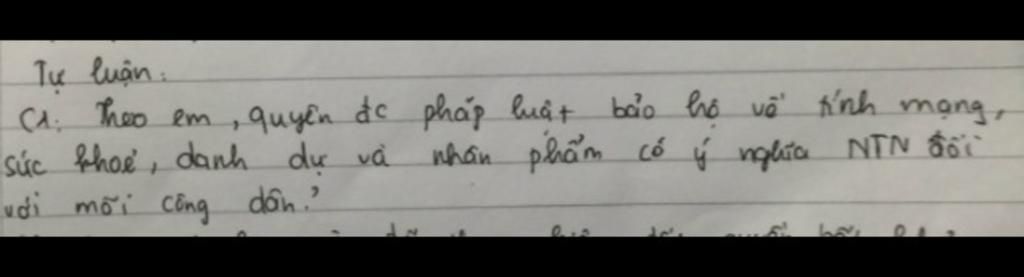 Tự luận:
C1: Theo em, quyền đc pháp luật bảo hộ về tính mạng,
sức khoẻ, danh dự và nhân phẩm có ý nghĩa NTN đối
với mỗi công dân?